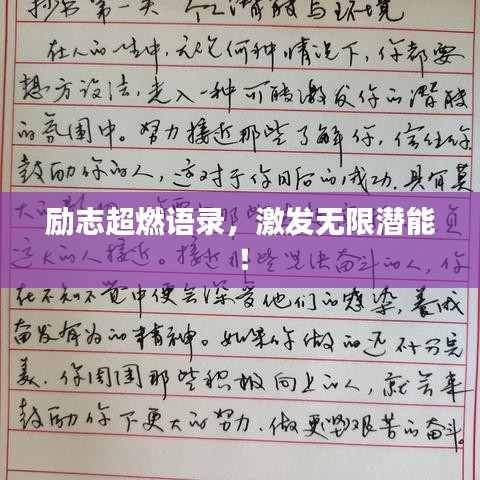 抄书第一头 个人潜能与环境
在人的一生中，无论何种情况下，你都要
想方设法，走入一种可能激发你的潜能
的氛围中。努力接近那些了解你，信任你
鼓励你的人，这对于你日后的成功，具有莫
大的
励志超燃语录，激发无限潜能
！
远大的人接近。那些坚决奋斗的人，你
在不知不觉中便会深受他们的感染，养成
奋发有为的精神。如果你做的还不十分完
美，你周围那些积极向上的人，就会来
鼓励你下更大的努力，做更坚艰苦的奋斗。